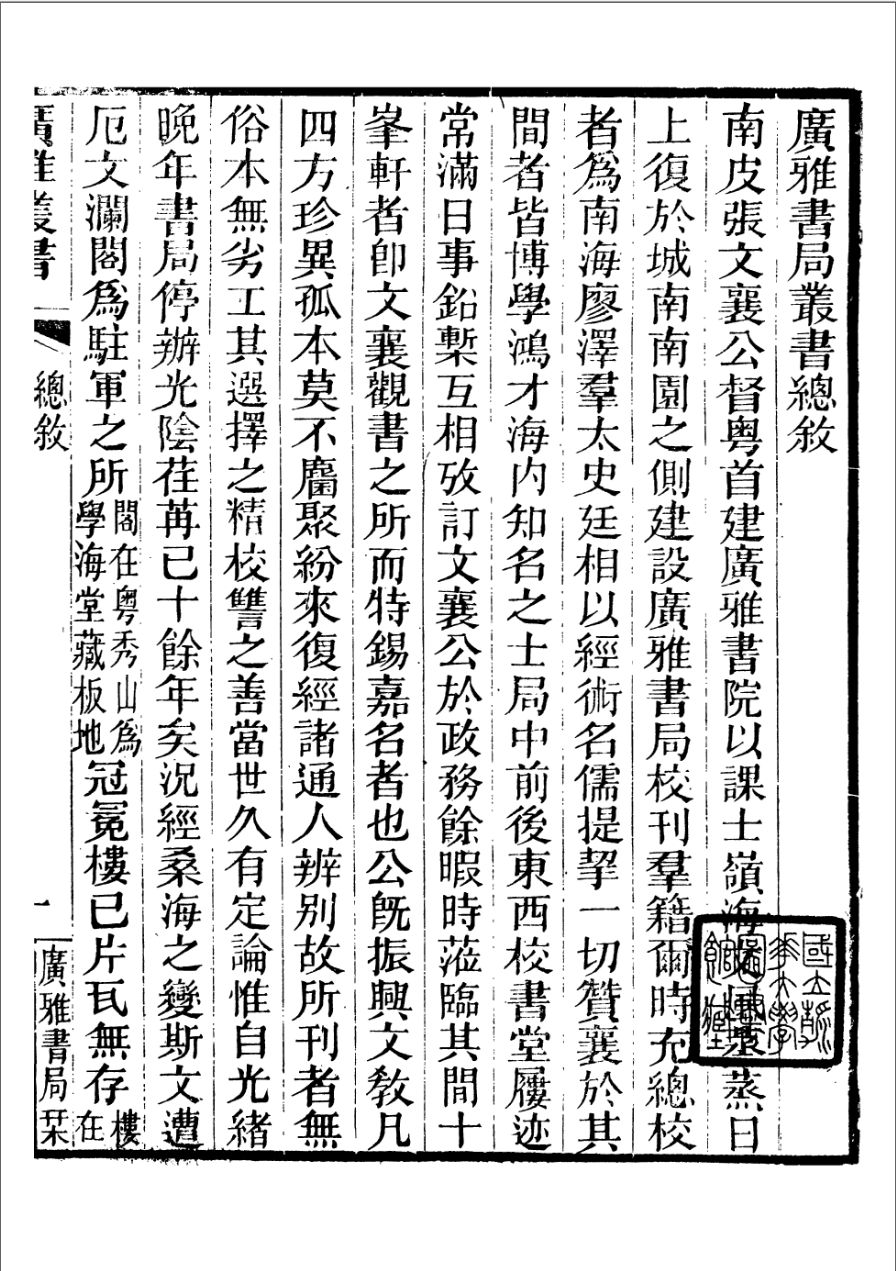 廣雅書局叢書總敘
南皮張文襄公督粤首建廣雅書院以課士嶺海蒸日
上復於城南南園之側建設廣雅書局校刊羣籍爾時充總校
者爲南海廖澤羣太史廷相以經術名儒提挈一切贊襄於其
間者皆博學鴻才海内知名之士局中前後東西校書堂屨迹
常滿日事鉛槧互相攷訂文襄公於政務餘暇時蒞臨其間十
峯軒者卽文襄觀書之所而特錫嘉名者也公旣振興文教凡
四方珍異孤本莫不麕聚紛來復經諸通人辨別故所刊者無
俗本無劣工其選擇之精校讐之善當世久有定論惟自光緒
晚年書局停辦光陰荏苒已十餘年矣況經桑海之變斯文遭
厄文瀾閣爲駐軍之所閣在粤秀山爲學海堂藏板地冠冕樓已片瓦無存樓在
廣雅叢書
總敘
一
廣雅書局栞
國立
大學
館